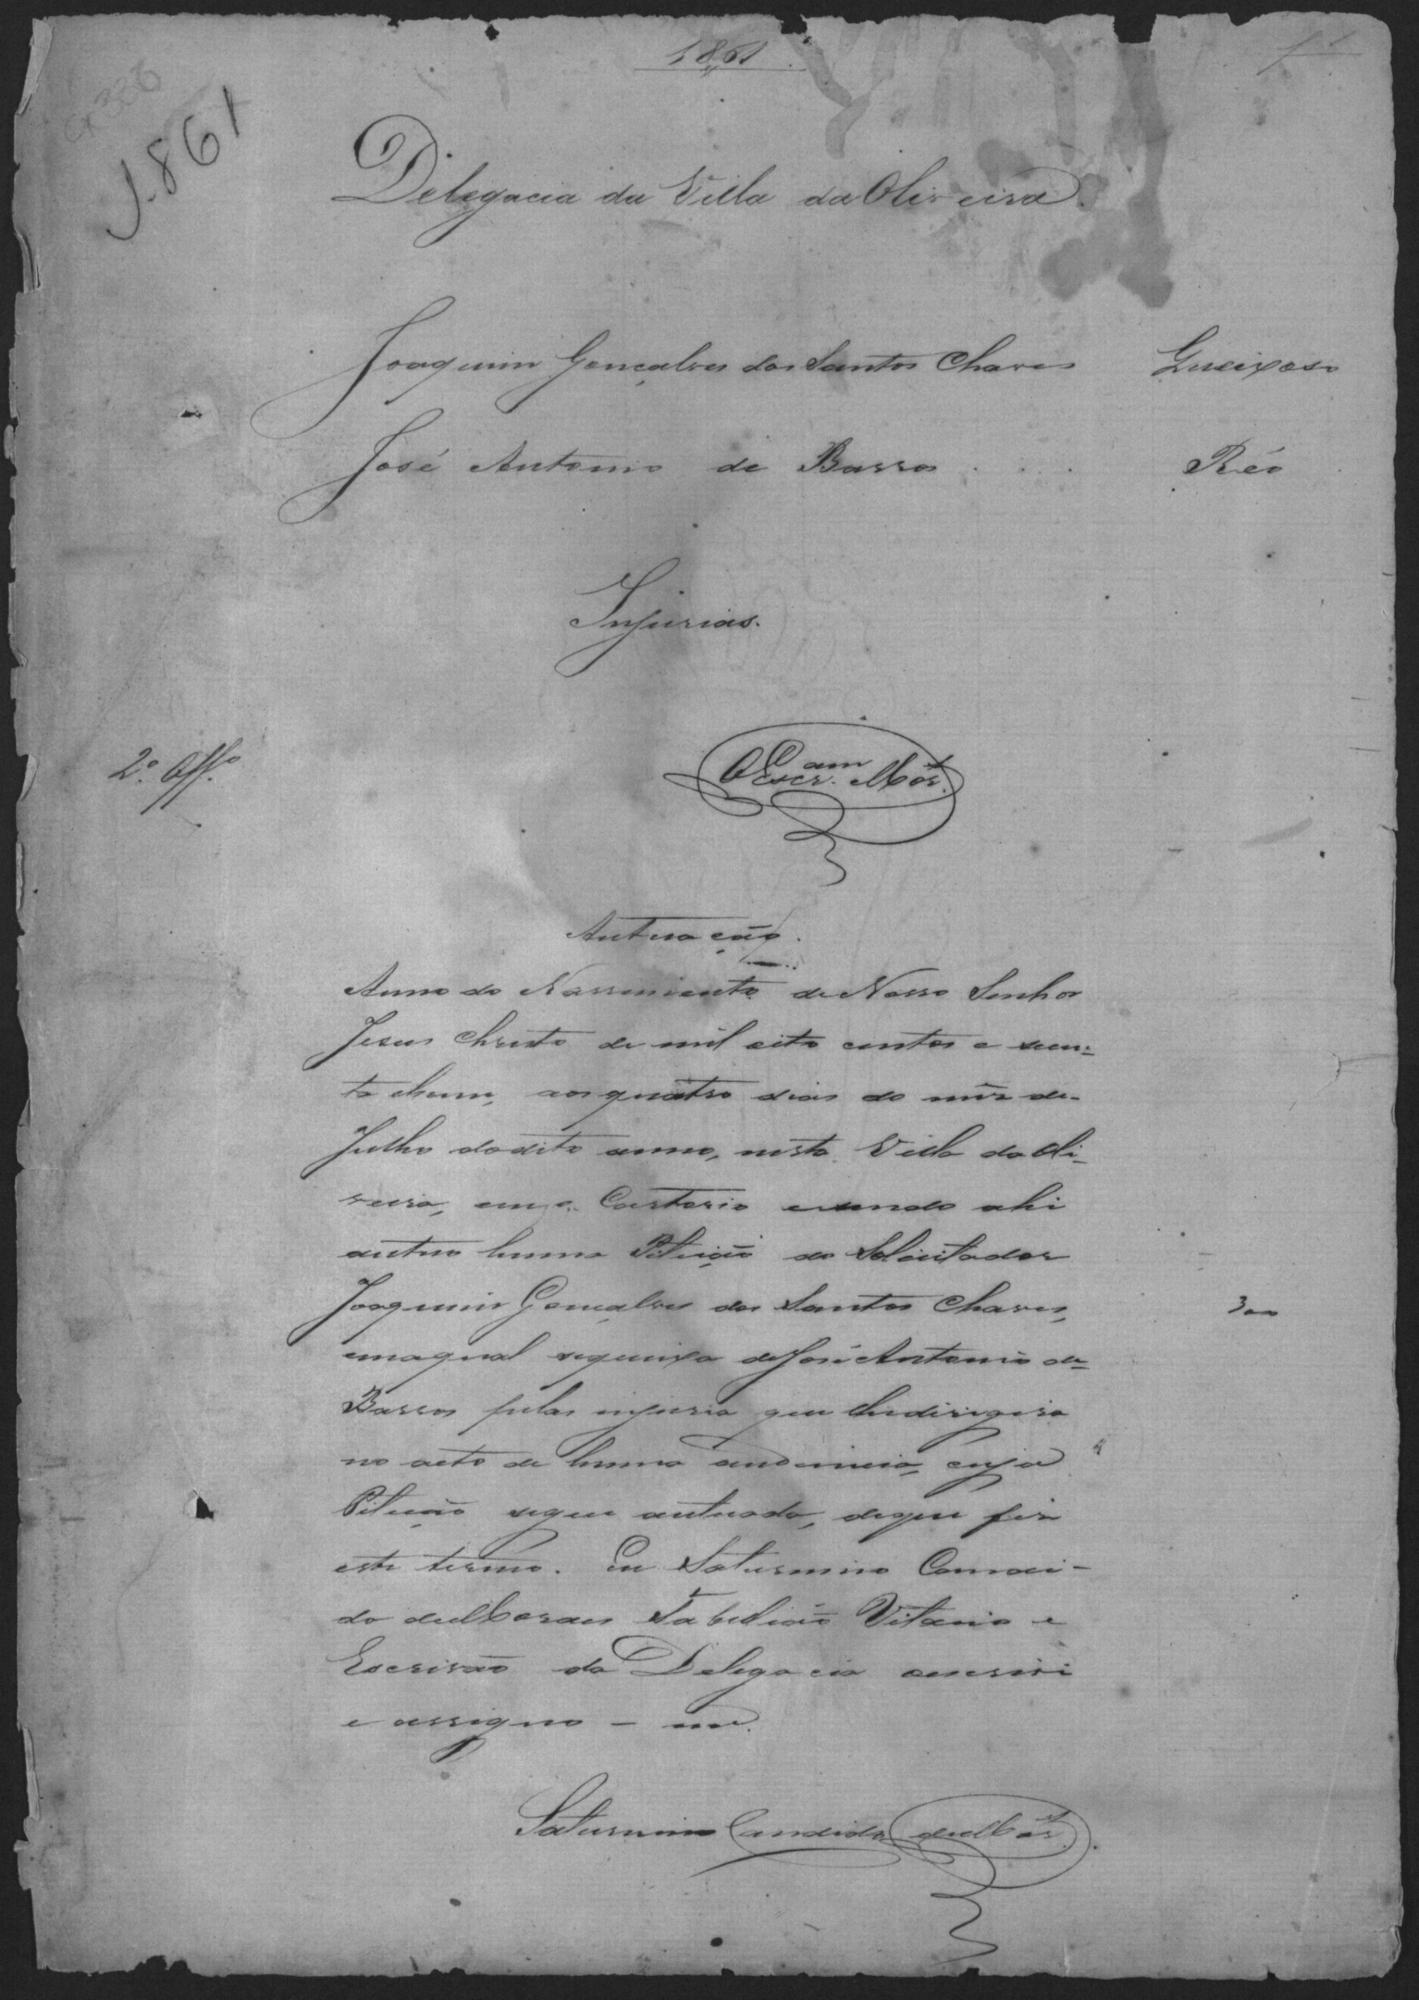 1861
Cx 306
1.861
Delegacia da Villa da Oliveira.
Joaquim Gonçalves dos Santos Chaves Queixoso
José Antonio de Barros . . . Réo
Injurias.
2º. Offº
O Escr.am Mes.
Autuação.
Anno do Nascimento de Nosso Senhor
Jesus Christo de mil oito centos e secen-
ta ehum, aos quatro dias do mez de
Julho dodito anno, nesta Villa da Oli-
veira, em Cartorio esendo ahi
autuo huma Petição do Solicitador
Joaquim Gonçalves dos Santos Chaves,
emaqual sequeixa de José Antonio de
Barros pelas injuria que lhedirigira
no acto de huma audiencia, cuja
Petição segue autuada, deque fiz
este termo. Eu Saturnino Candi-
do deMoraes Tabelião Vitalicio e
Escrivão da Delegacia escrevi
e assigno —
300
Saturnino Candido deMes.